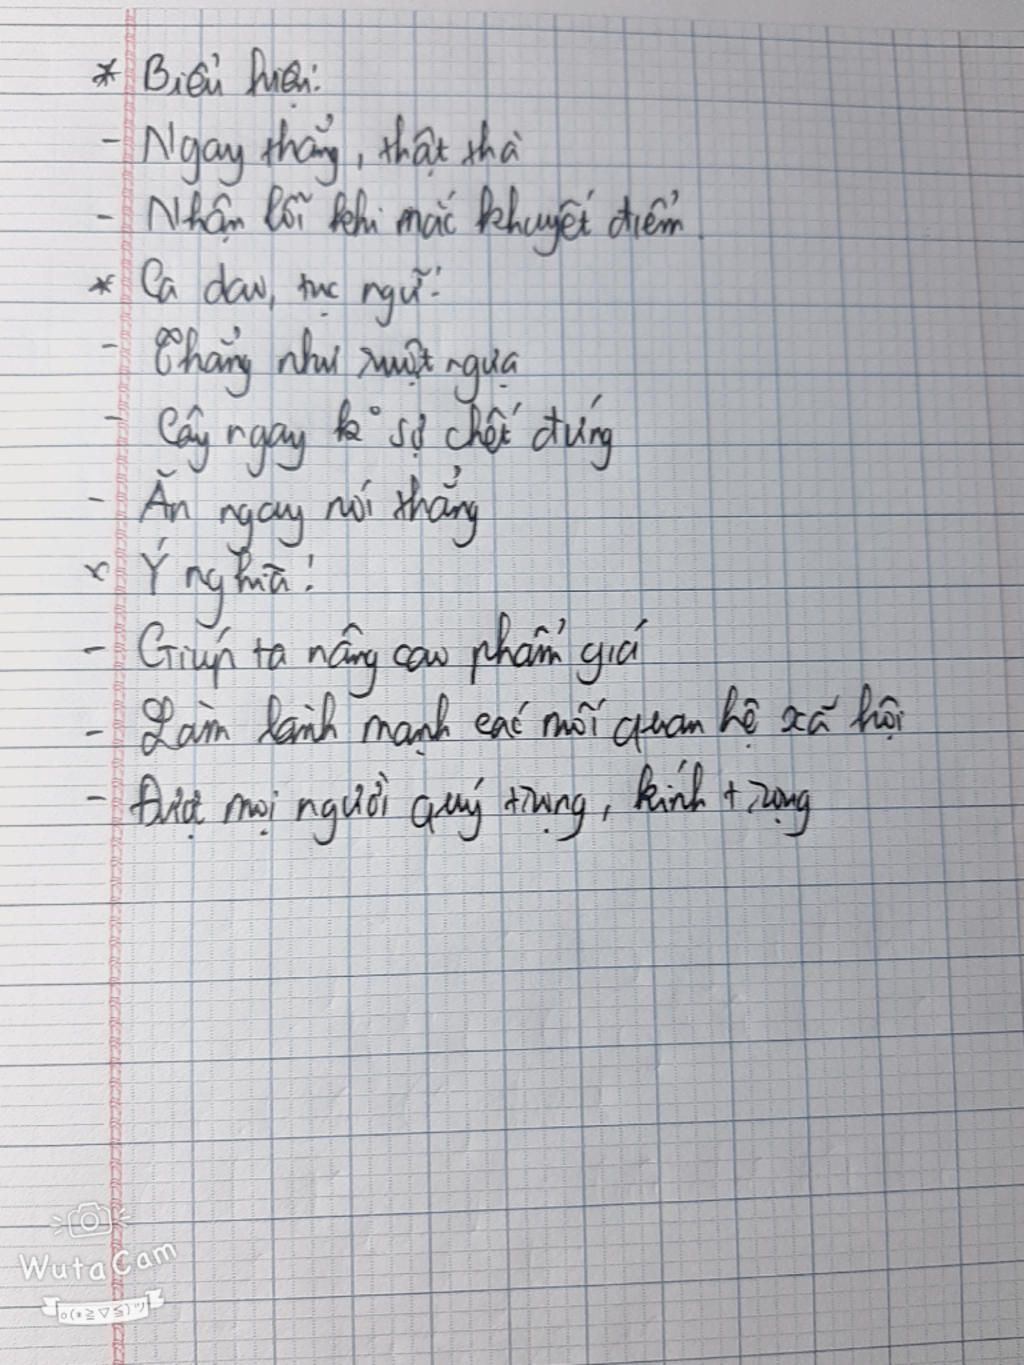 * Biểu hiện:
- Ngay thẳng, thật thà
- Nhận lỗi khi mắc khuyết điểm.
* Ca dao, tục ngữ:
- Thẳng như ruột ngựa
- Cây ngay k° sợ chết đứng
- Ăn ngay nói thẳng
* Ý nghĩa:
- Giúp ta nâng cao phẩm giá
- Làm lành mạnh các mối quan hệ xã hội
- Được mọi người quý trọng, kính trọng
WutaCam
o(*≧▽≦)ツ